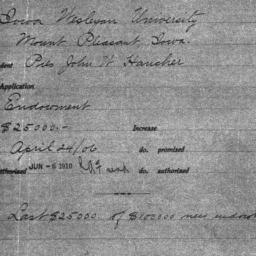 Iowa Wesleyan University
Mount Pleasant, Iowa.
dent Pres John W Hancher
Application
Endowment
$25000.- Increase
April 24/06 do. promised
thorised JUN -6 1910 do. authorized
Last $25000 of $100000 new endow